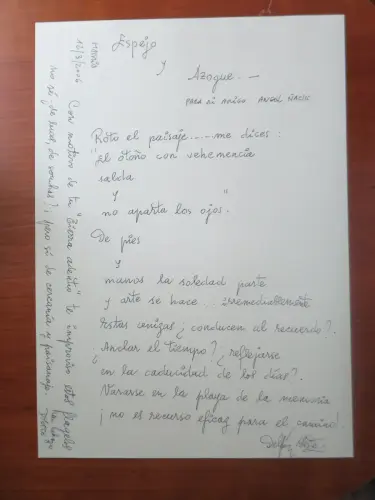 Espejo
y
Azogue.—
PARA MI AMIGO ANGEL
Roto el paisaje.....me dices:
"El otoño con vehemencia
salda
y
no aparta los ojos."
De pies
y
manos la soledad parte
y arte se hace... irremediablemente
Estas cenizas ¿conducen al recuerdo?.
¿Anclar el tiempo? ¿reflejarse
en la caducidad de los días?.
Vararse en la playa de la memoria
¡no es recurso eficaz para el camino!
HERVÁS
12/3/2006
Con motivo de tu "Tierra adentro" te improviso estos
no sé de luca, de ¡pero sí de cercanía y paisanaje.